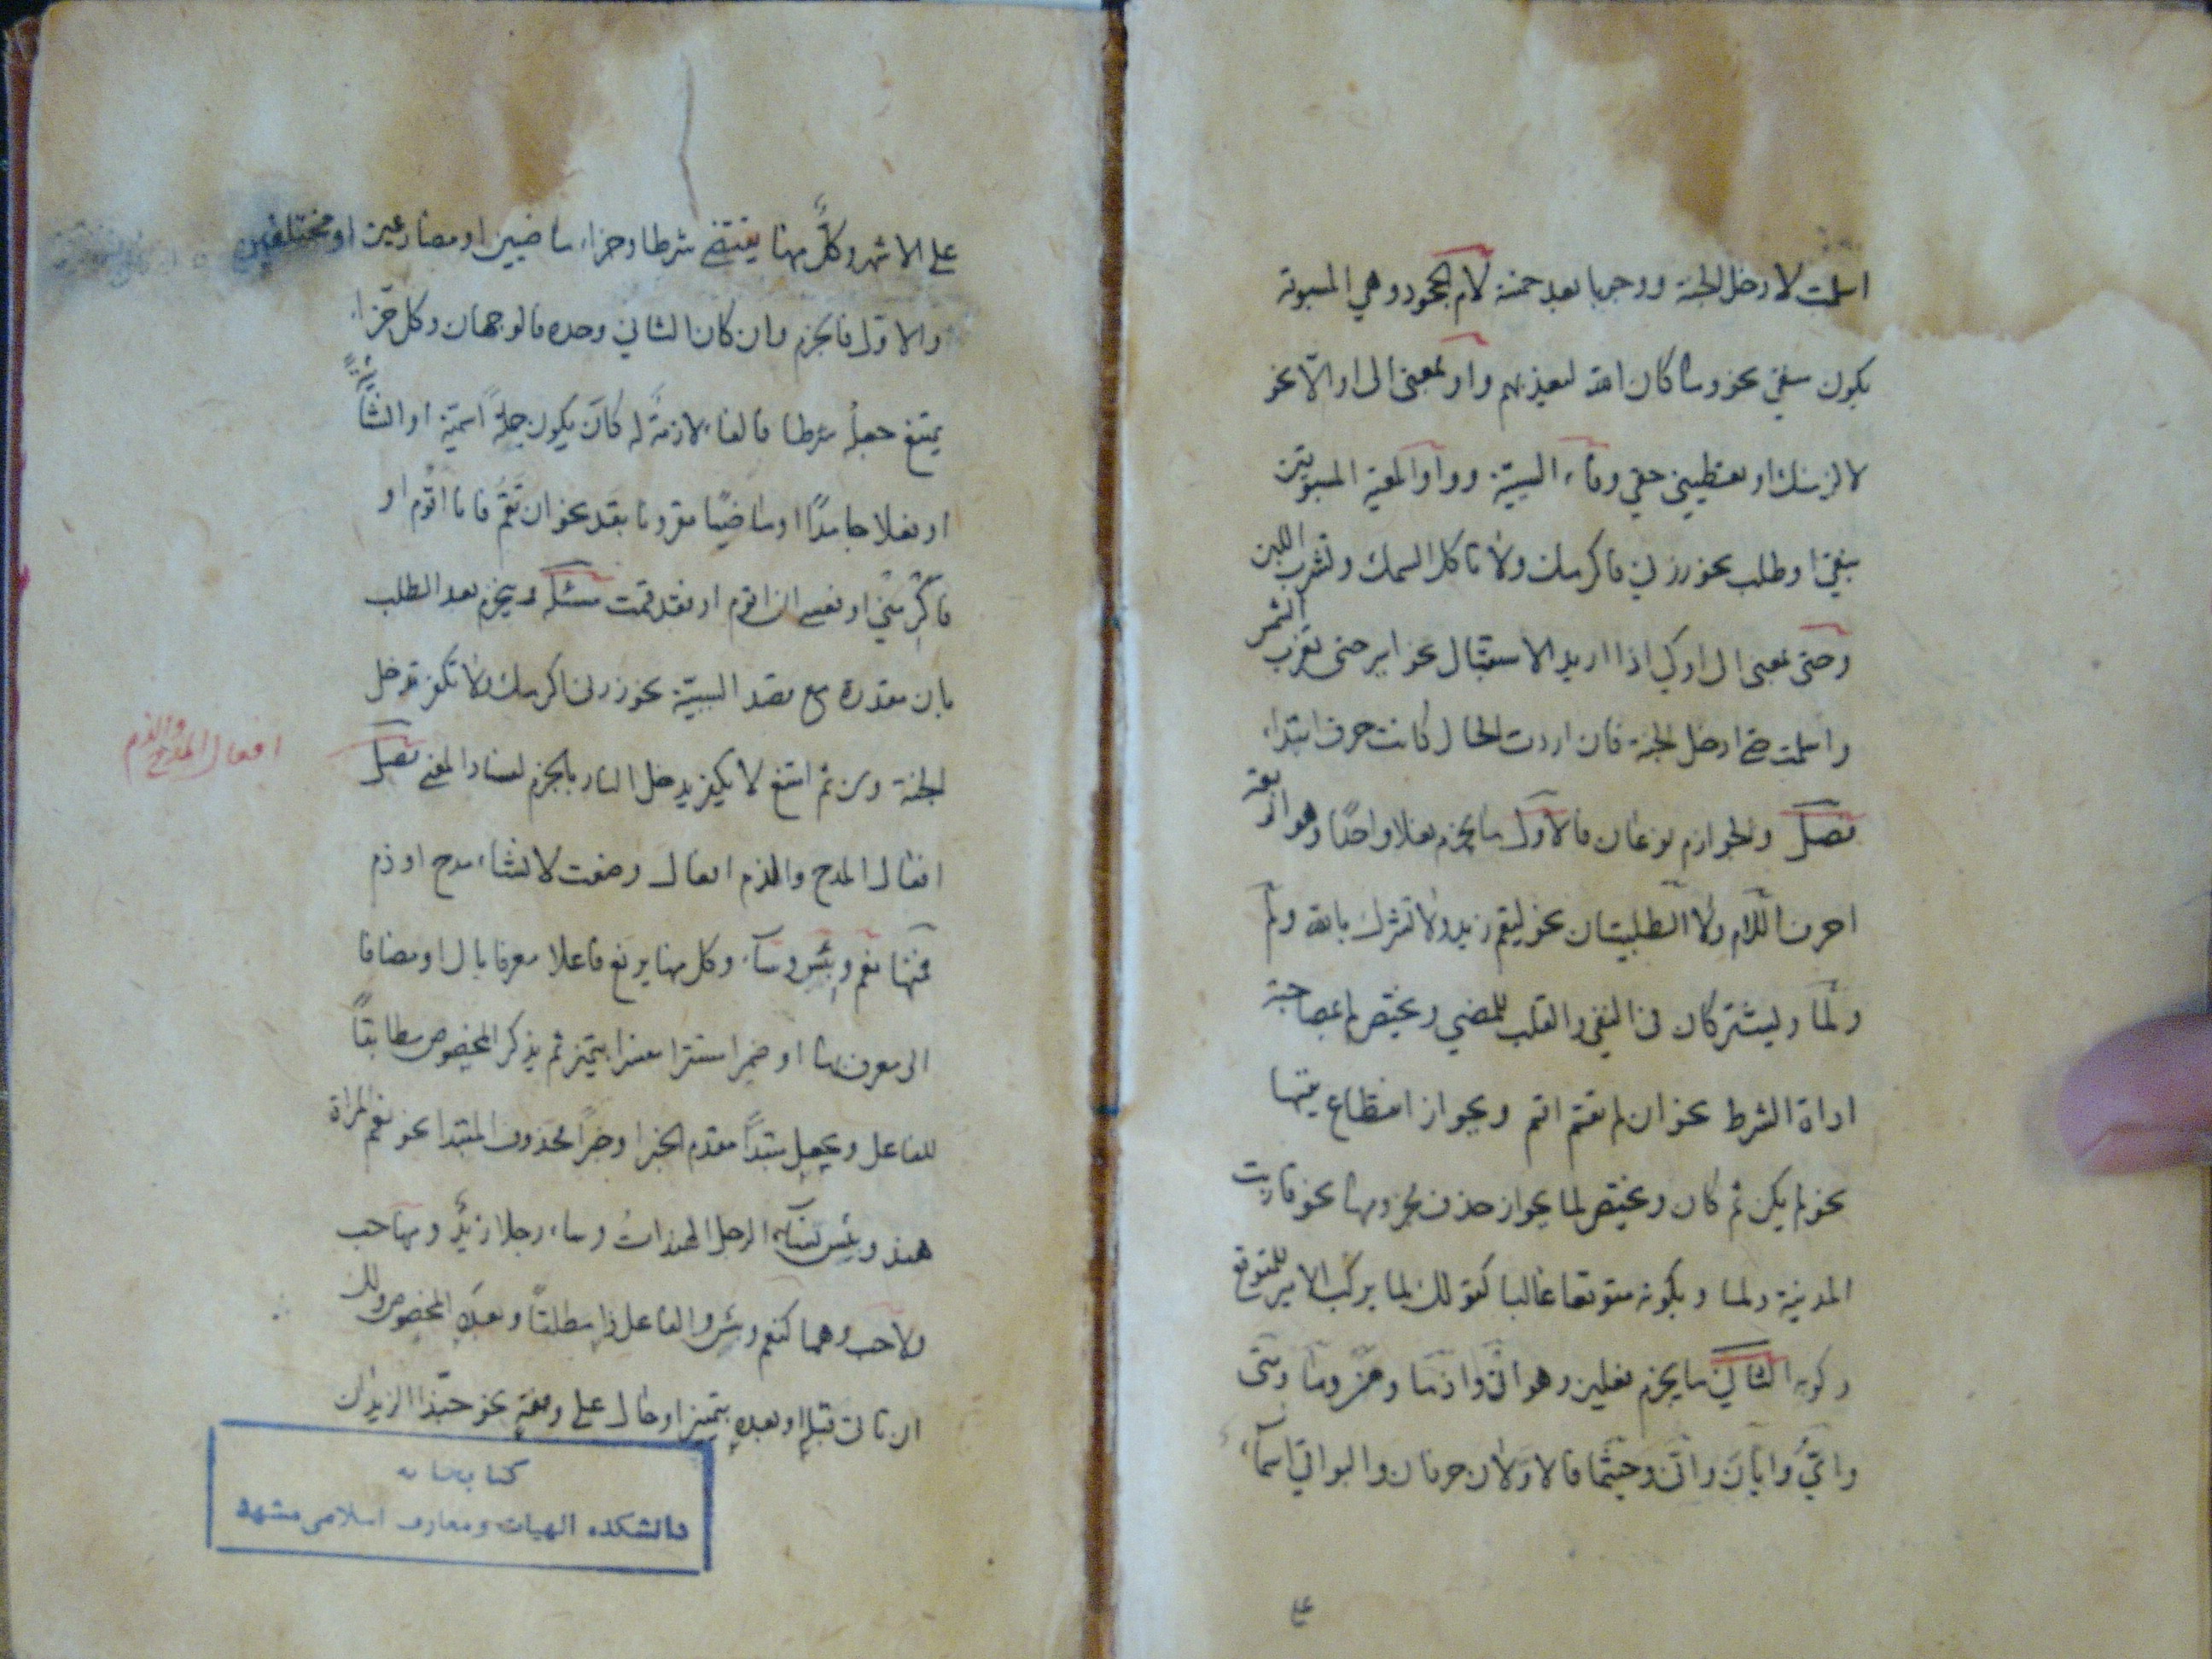 اسلمت لادخل الجنة ووجوبا بعد خمسة لام الجحود وهي المسبوقة
بكون منفي نحو وما كان الله ليعذبهم واو بمعنى الى او الا نحو
لالزمنك او تعطيني حقي وفاء السببية وواو المعية المسبوقتين
بنفي او طلب نحو زرني فاكرمك ولا تاكل السمك وتشرب اللبن
وحتى بمعنى الى او كي اذا اريد الاستقبال نحو اسير حتى تغرب الشمس
واسلمت حتى ادخل الجنة فان اردت الحال كانت حرف ابتداء
فصل والجوازم نوعان فالاول ما يجزم فعلا واحدا وهو اربعة
احرف اللام ولا الطلبيتان نحو ليقم زيد ولا تشرك بالله ولم
ولما ويشتركان في النفي والقلب للمضي ويختص لم بمصاحبة
اداة الشرط نحو ان لم تقم اقم وبجواز انقطاع منفيها
نحو لم يكن ثم كان ويختص لما بجواز حذف مجزومها نحو قاربت
المدينة ولما وبكونه متوقعا غالبا كقولك لما يركب الامير للمتوقع
ركوبه الثاني ما يجزم فعلين وهو ان واذما ومن وما ومتى
واي وايان وانى وحيثما فالاولان حرفان والبواقي اسماء
على الاشهر وكل منها يقتضي شرطا وجزاء ماضيين او مضارعين او مختلفين
والاول فالجزم وان كان الثاني وحده فالوجهان وكل جزاء
يمتنع جعله شرطا فالفاء لازمة له كان يكون جملة اسمية او انشائية
او فعلا جامدا او ماضيا مقرونا بقد نحو ان تقم فانا اقوم او
فاكرمني او فعسى ان اقوم او فقد قمت مسئلة وينجزم بعد الطلب
بان مقدرة مع قصد السببية نحو زرني اكرمك ولا تكفر تدخل
الجنة ومن ثم امتنع لا تكفر تدخل النار بالجزم لفساد المعنى فصل
افعال المدح والذم
افعال المدح والذم افعال وضعت لانشاء مدح او ذم
فمنها نعم وبئس وساء وكل منها يرفع فاعلا معرفا بال او مضافا
الى معرف بها او ضميرا مستترا مفسرا بتميز ثم يذكر المخصوص مطابقا
للفاعل ويجعل مبتدا مقدم الخبر او خبرا محذوف المبتدا نحو نعم المراة
هند وبئس نساء الرجل الهندات وساء رجلا زيد ومنها حب
ولا حب وهما كنعم وبئس والفاعل ذا مطلقا وبعده المخصوص ولك
ان تاتي قبله او بعده بتميز او حال على وفقه نحو حبذا الزيدان
كتابخانه
دانشكده الهيات ومعارف اسلامى مشهد